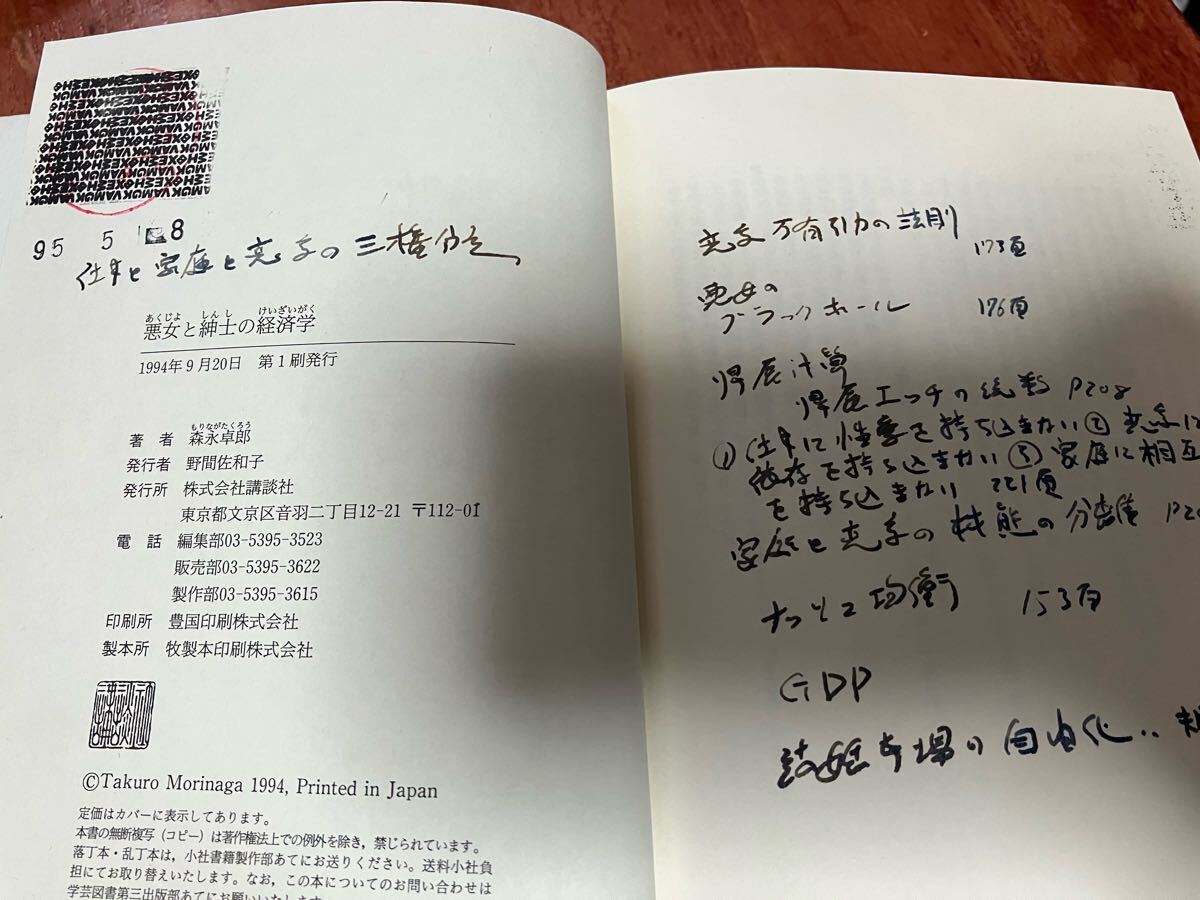 95 5 8
仕事と家庭と恋愛の三権分立
あくじょ しんし けいざいがく
悪女と紳士の経済学
1994年9月20日 第1刷発行
もりながたくろう
著者 森永卓郎
発行者 野間佐和子
発行所 株式会社講談社
東京都文京区音羽二丁目12-21 〒112-01
電話 編集部03-5395-3523
販売部03-5395-3622
製作部03-5395-3615
印刷所 豊国印刷株式会社
製本所 牧製本印刷株式会社
©Takuro Morinaga 1994, Printed in Japan
定価はカバーに表示してあります。
本書の無断複写（コピー）は著作権法上での例外を除き，禁じられています。
落丁本・乱丁本は，小社書籍製作部あてにお送りください。送料小社負
担にてお取り替えいたします。なお，この本についてのお問い合わせは
学芸図書第三出版部あてにお願いいたします。
恋愛万有引力の法則
173頁
悪女の
ブラックホール 176頁
損居計算
エッチの P208
① 仕事に性愛を持ち込まない ② 恋愛に
依存を持ち込まない ③ 家庭に相互
を持ち込まない 221頁
家庭と恋愛の機能の分離 P20
ナッシュ均衡 153頁
GDP
結婚市場の自由化‥